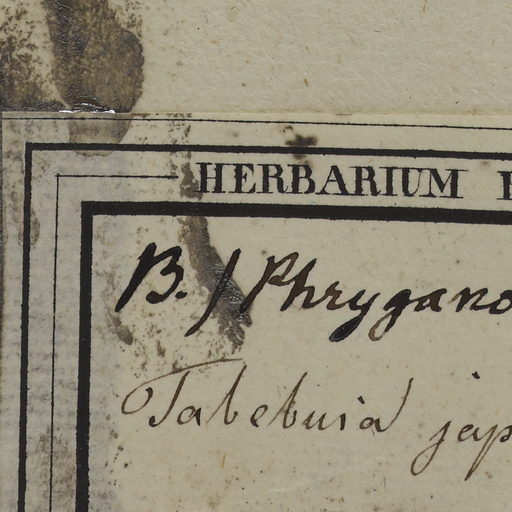 HERBARIUM
B. / Phrygano
Tabebuia jap